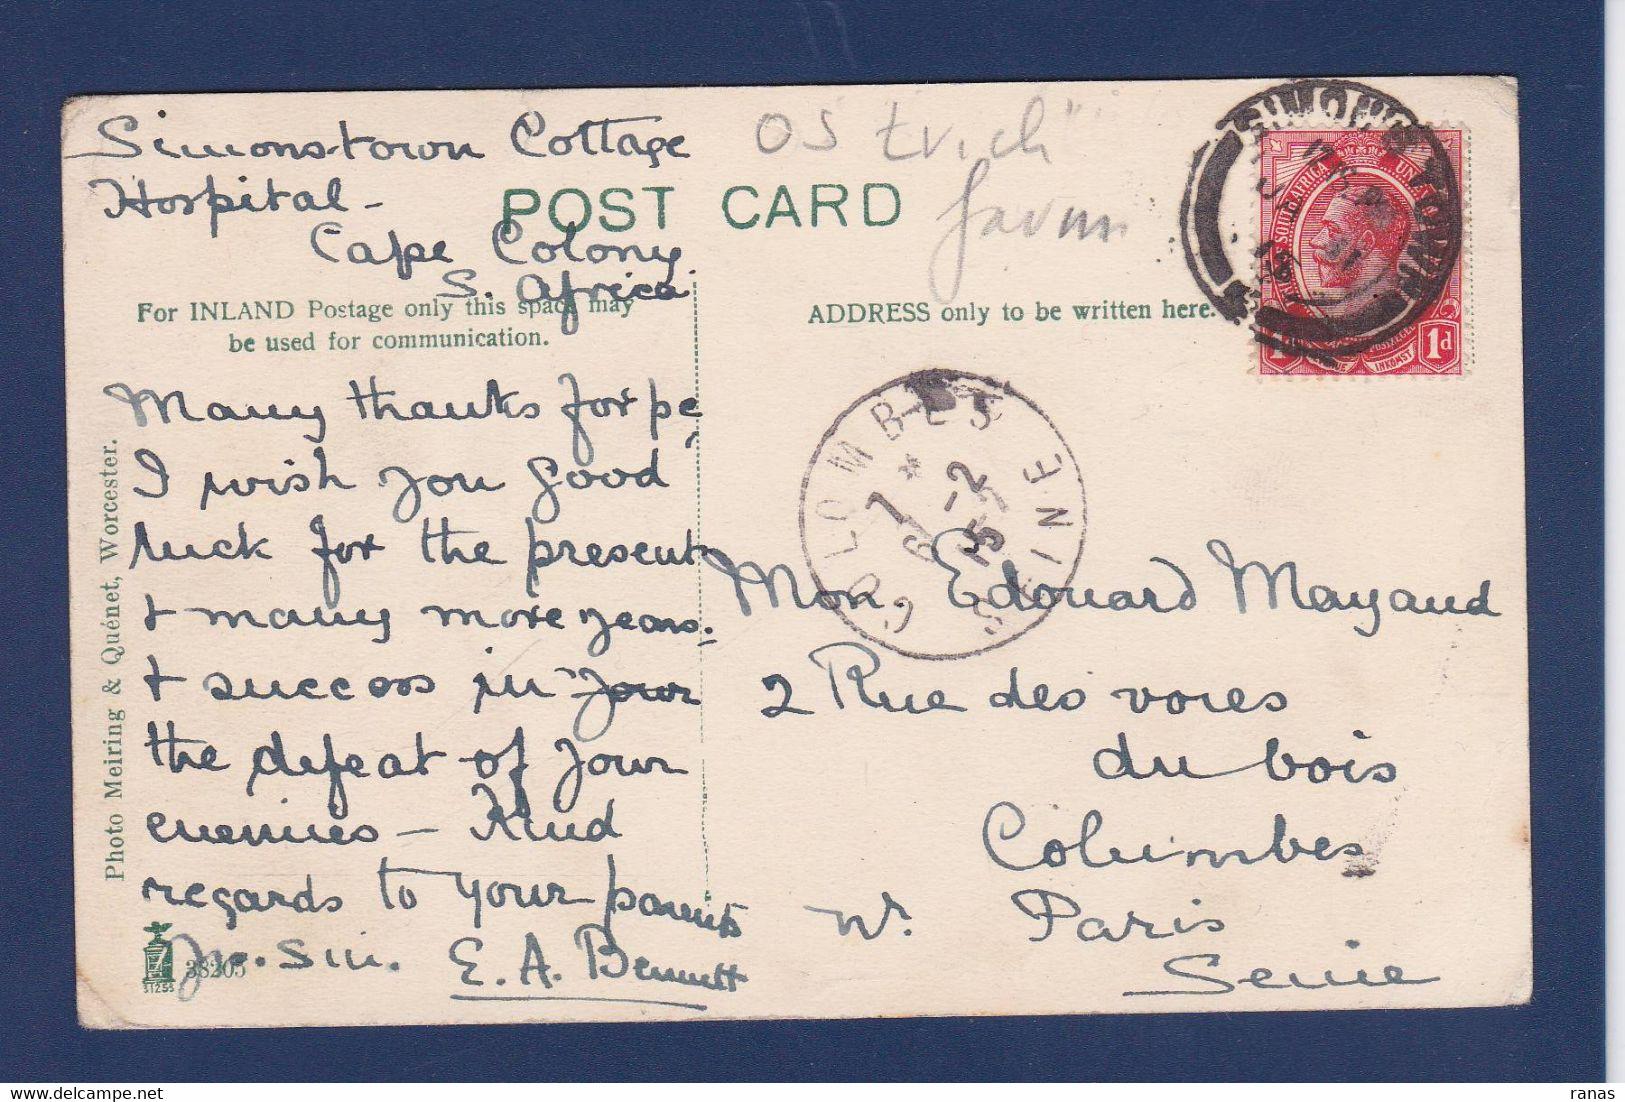 Simonstown Cottage
Hospital -
Cape Colony
S. Africa
OS trich
farm
POST CARD
For INLAND Postage only this space may
be used for communication.
ADDRESS only to be written here.
Many thanks for pc,
I wish you good
luck for the present
+ many more years.
+ success in your
the defeat of your
enemies - Kind
regards to your parents
Yrs. Sin. E. A. Bennett
Mon. Edouard Mayaud
2 Rue des voies
du bois
Columbes
Nr. Paris
Seine
Photo Meiring & Quénet, Worcester.
38205
31255
SIMONSTOWN
UNION OF SOUTH AFRICA
1d
INKOMST
COLOMBES
7 * 
6 -2
15
SEINE
ranas